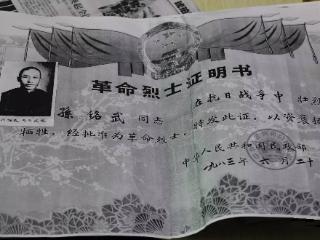 革命烈士证明书
孫铭武 同志 在抗日战争中 壮烈
牺牲,经批准为革命烈士,特发此证,以资褒扬
中华人民共和国民政部
一九八三年 六月 二十